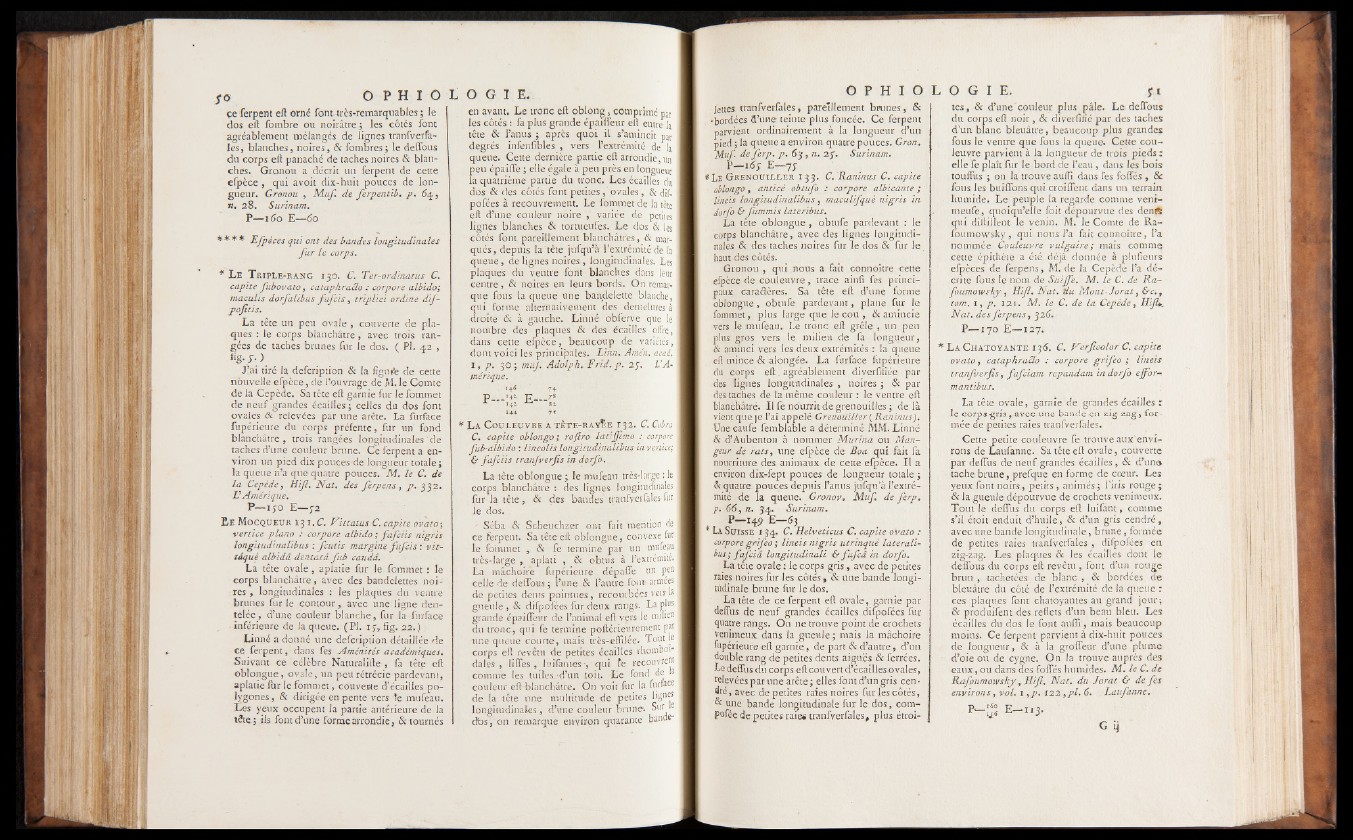 50 OPHIOLOGIE.
ce serpent est orné sont très-remarquables ; le
dos est sombre ou noirâtre ; les côtés sont
agréablement mélangés de lignes transversa-
les, blanches, noires, & sombres ; le dessous
du corps est panaché de taches noires & blan-
ches. Gronou a décrit un serpent de cette
espèce , qui avoit dix-huit pouces de lon-
gueur. Gronou , Mus. de serpentib. p. 64,
n. 28. Surinam.
P—160 E—60
**** Espèces qui ont des bandes longitudinales
sur le corps.
* LE TRIPLE-RANG 130. C. Ter-ordinatus C.
capite subovato , cataphracto : corpore albido;
maculis dorsalibus fuscis , triplici ordine dis-
positis.
La tête un peu ovale , couverte de pla-
ques : le corps blanchâtre , avec trois ran-
gées de taches brunes sur le dos. ( Pl. 42 ,
fig. 5. )
J'ai tiré la description & la figure de cette
nouvelle espèce, de l'ouvrage de M. le Comte
de la Cepède. Sa tête est garnie sur le sommet
de neuf grandes écailles ; celles du dos sont
ovales & relevées par une arête. La surface
supérieure du corps présente, sur un fond
blanchâtre , trois rangées longitudinales de
taches d'une couleur brune. Ce serpent a en-
viron un pied dix pouces de longueur totale ;
la queue n'a que quatre pouces. M. le C. de
la Cepède, Hist. Nat. des serpens, p. 332.
L'Amérique.
P—150 E—52
LE MOCQUEUR 131. C. Vittatus C. capite ovato;
vertice plano : corpore albido ; fasciis nigris
longitudinalibus : scutis margine fuscis : vit-
tâque albidâ dentatâ sub caudâ.
La tête ovale , aplatie sur le sommet : le
corps blanchâtre , avec des bandelettes noi-
res , longitudinales : les plaques du ventre
brunes sur le contour, avec une ligne den-
telée, d'une couleur blanche, sur la surface
inférieure de la queue. (Pl. 15, fig. 22.)
Linné a donné une description détaillée de
ce serpent, dans ses Aménités académiques.
Suivant ce célèbre Naturaliste , sa tête est
oblongue , ovale , un peu rétrécie pardevant,
aplatie sur le sommet , couverte d'écailles po-
lygones, & dirigée en pente vers le museau.
Les yeux occupent la partie antérieure de la
tête ; ils sont d'une forme arrondie, & tournés
en avant. Le tronc est oblong , comprimé par
les côtés : sa plus grande épaisseur est entre la
tête & l'anus ; après quoi il s'amincit par
degrés insensibles , vers l'extrémité de la
queue. Cette dernière partie est arrondie, un
peu épaisse ; elle égale à peu près en longueur
la quatrième partie du tronc. Les écailles du
dos & des côtés sont petites, ovales, & dis-
posées à recouvrement. Le sommet de la tête
est d'une couleur noire , variée de petites
lignes blanches & tortueuses. Le dos & les
côtés sont pareillement blanchâtres, & mar-
qués, depuis la tête jusqu'à l'extrémité de la
queue, de lignes noires , longitudinales. Les
plaques du ventre sont blanches dans leur
centre , & noires en leurs bords. On remar-
que sous la queue une bandelette blanche,
qui forme alternativement des dentelures à
droite & à gauche. Linné observe que le
nombre des plaques & des écailles offre,
dans cette espèce , beaucoup de variétés,
dont voici les principales. Linn. Amén. acad.
1, p. 30 ; mus. Adolph. Frid. p. 25. L'A-
mérique.
146 74
P---142 E---78
142 82
141 71
* LA COULEUVRE A TÊTE-RAYÉE 132. C. Cobra
C. capite oblongo ; rostro latissimo : corpore
sub-albido : lineolis longitudinalibus in vertice
& fasciis transversis in dorso.
La tête oblongue ; le museau très-large : le
corps blanchâtre : des lignes longitudinales
sur la tête , & des bandes transversales sur
le dos.
Séba & Scheuchzer ont fait mention de
ce serpent. Sa tête est oblongue, convexe sur
le sommet , & se termine par un museau
très-large , aplati , & obtus à l'extrémité.
La mâchoire supérieure dépasse un peu
celle de dessous ; l'une & l'autre sont armées
de petites dents pointues, recourbées vers la
gueule , & disposées sur deux rangs. La plus
grande épaisseur de l'animal est vers le milieu
du tronc, qui se termine postérieurement par
une queue courte, mais très-effilée. Tout le
corps est revêtu de petites écailles rhomboï-
dales , lisses, luisantes, qui se recouvrent
comme les tuiles d'un toit. Le fond de la
couleur est blanchâtre. On voit sur la surface
de la tête une multitude de petites lignes
longitudinales , d'une couleur brune. Sur le
dos, on remarque environ quarante bande-
OPHIOLOGIE. 51
lettes transversales, pareillement brunes, &
bordées d'une teinte plus foncée. Ce serpent
parvient ordinairement à la longueur d'un
pied ; la queue a environ quatre pouces. Gron.
Mus. de serp. p. 63, n. 25. Surinam.
P—165 E—75
* LE GRENOUILLER 133. C. Raninus C. capite
oblongo , anticè obtuso : corpore albicante ;
lineis longitudinalibus, maculisque nigris in
dorso & summis lateribus.
La tête oblongue , obtuse pardevant : le
corps blanchâtre, avec des lignes longitudi-
nales & des taches noires sur le dos & sur le
haut des côtés.
Gronou , qui nous a fait connoître cette
espèce de couleuvre , trace ainsi ses princi-
paux caractères. Sa tête est d'une forme
oblongue , obtuse pardevant , plane sur le
sommet, plus large que le cou , & amincie
vers le museau. Le tronc est grêle , un peu
plus gros vers le milieu de sa longueur,
& aminci vers ses deux extrémités : la queue
est mince & alongée. La surface supérieure
du corps est agréablement diversifiée par
des lignes longitudinales , noires ; & par
des taches de la même couleur : le ventre est
blanchâtre. Il se nourrit de grenouilles ; de là
vient que je l'ai appelé Grenouiller ( Raninus).
Une cause semblable a déterminé MM. Linné
& d'Aubenton à nommer Murina ou Man-
geur de rats, une espèce de Boa qui fait sa
nourriture des animaux de cette espèce. Il a
environ dix-sept pouces de longueur totale ;
& quatre pouces depuis l'anus jusqu'à l'extré-
mité de la queue. Gronov. Mus. de serp.
p. 66, n. 34. Surinam.
P—149 E—63
* LA SUISSE 134. C. Helveticus C. capite ovato :
corpore griseo ; lineis nigris utrinquè laterali-
bus ; fasciâ longitudinali & fuscâ in dorso.
La tête ovale : le corps gris, avec de petites
raies noires sur les côtés, & une bande longi-
tudinale brune sur le dos.
La tête de ce serpent est ovale, garnie par
dessus de neuf grandes écailles disposées sur
quatre rangs. On ne trouve point de crochets
venimeux dans sa gueule ; mais la mâchoire
supérieure est garnie, de part & d'autre, d'un
double rang de petites dents aiguës & serrées.
Le dessus du corps est couvert d'écailles ovales,
relevées par une arête ; elles sont d'un gris cen-
dré, avec de petites raies noires sur les côtés,
& une bande longitudinale sur le dos, com-
posée de petites raies transversales, plus étroi-
tes, & d'une couleur plus pâle. Le dessous
du corps est noir, & diversifié par des taches
d'un blanc bleuâtre, beaucoup plus grandes
sous le ventre que sous la queue. Cette cou-
leuvre parvient à la longueur de trois pieds :
elle se plaît sur le bord de l'eau, dans les bois
touffus ; on la trouve aussi dans les fossés , &
sous les buissons qui croissent dans un terrain
humide. Le peuple la regarde comme veni-
meuse, quoiqu'elle soit dépourvue des dents
qui distillent le venin. M. le Comte de Ra-
soumowsky , qui nous l'a fait connoître, l'a
nommée Couleuvre vulgaire ; mais comme
cette épithète a été déjà donnée à plusieurs
espèces de serpens, M. de la Cepède l'a dé-
crite sous le nom de Suisse. M. le C. de Ra-
soumowsky, Hist. Nat. du Mont-Jorat, &c.,
tom. 1, p. 121. M. le C. de la Cepède, Hist.
Nat. des serpens, 326.
P—170 E—127.
* LA CHATOYANTE 136. C. Versicolor C. capite
ovato, cataphracto : corpore griseo ; lineis
transversis, fasciam repandam in dorso effor-
mantibus.
La tête ovale, garnie de grandes écailles :
le corps gris, avec une bande en zig zag, for-
mée de petites raies transversales.
Cette petite couleuvre se trouve aux envi-
rons de Lausanne. Sa tête est ovale, couverte
par dessus de neuf grandes écailles, & d'une
tache brune, presque en forme de cœur. Les
yeux sont noirs, petits, animés ; l'iris rouge ;
& la gueule dépourvue de crochets venimeux.
Tout le dessus du corps est luisant, comme
s'il étoit enduit d'huile, & d'un gris cendré,
avec une bande longitudinale, brune, formée
de petites raies transversales , disposées en
zig-zag. Les plaques & les écailles dont le
dessous du corps est revêtu , sont d'un rouge
brun , tachetées de blanc , & bordées de
bleuâtre du côté de l'extrémité de la queue :
ces plaques sont chatoyantes au grand jour,
& produisent des reflets d'un beau bleu. Les
écailles du dos le sont aussi , mais beaucoup
moins. Ce serpent parvient à dix-huit pouces
de longueur, & à la grosseur d'une plume
d'oie ou de cygne. On la trouve auprès des
eaux, ou dans des fossés humides. M. le C. de
Rasoumowsky, Hist. Nat. du Jorat & de ses
environs, vol. 1, p. 122, pl. 6. Lausanne.
P—160 E—113.
G ij